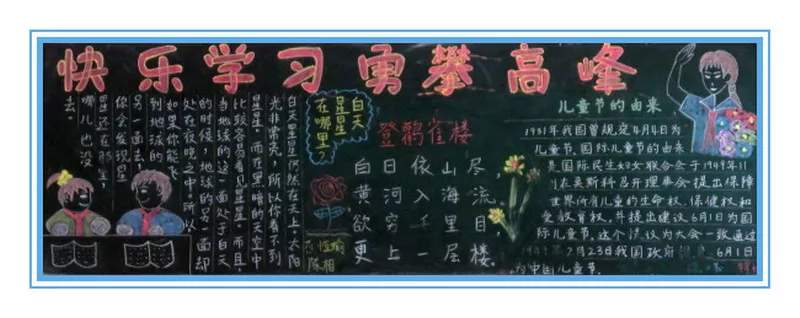 快乐学习勇攀高峰
白天星星仍然在天上,太阳
光非常亮,所以你看不到
星星。而在黑暗的天空中
比较容易看见星星。而且,
当地球的这一面处于白天
的时候,地球的另一面却
处在夜晚之中,所以
如果你能飞
到地球的
另一面去,
你会发现星
星还在那里,
哪儿也没
去。
白天
星星
在哪里?
登鹳雀楼
白日依山尽,
黄河入海流。
欲穷千里目,
更上一层楼。
儿童节的由来
1931年我国曾规定4月4日为
儿童节.国际儿童节的由来
是国际民主妇女联合会于1949年11
月在莫斯科召开理事会提出保障
世界所有儿童的生命权.保健权和
受教育权.并提出建议6月1日为国
际儿童节.这个决议为大会一致通过
月23日我国政府 6月1日
为中国儿童节.